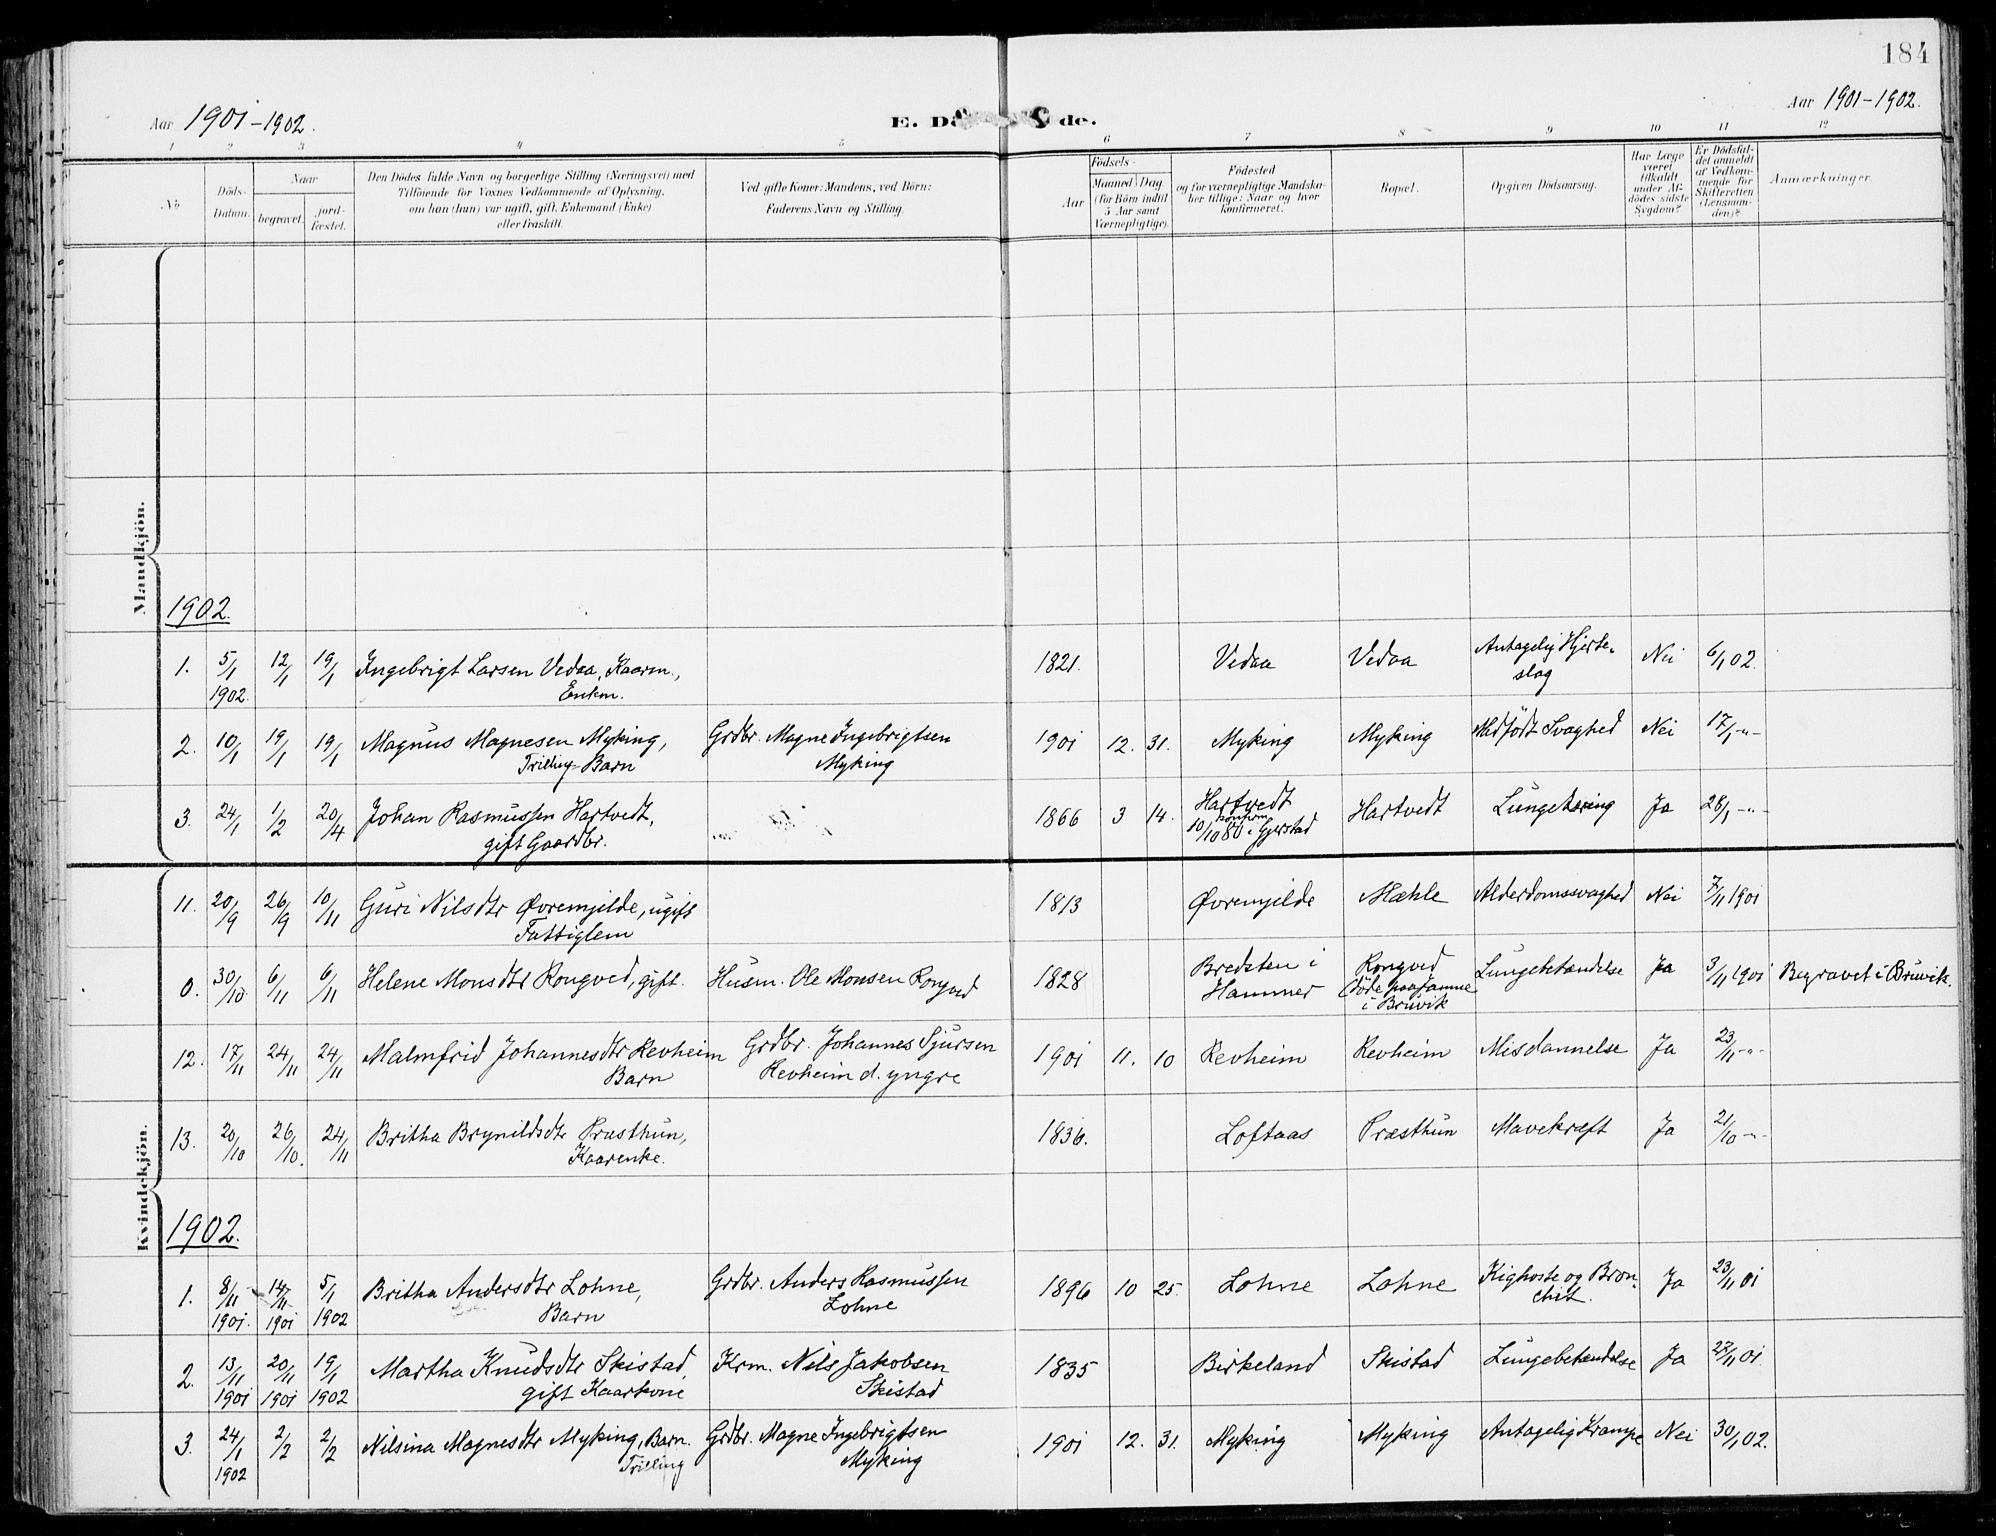 184
Aar 1901-1902.
E. Dö de.
Aar 1901-1902.
1 2 3 4 5 6 7 8 9 10 11 12
No
Döds-
Datum.
Naar
begravet.
jord-
fæstet.
Den Dödes fulde Navn og borgerlige Stilling (Næringsvei) med
Tilföiende for Voxnes Vedkommende af Oplysning,
om han (hun) var ugift, gift, Enkemand (Enke)
eller fraskilt.
Ved gifte Koner: Mandens, ved Börn:
Faderens Navn og Stilling.
Födsels-
Aar
Maaned Dag
(for Börn indtil
5 Aar samt
Værnepligtige).
Födested
og for værnepligtige Mandska-
ber tillige: Naar og hvor
konfirmeret.
Bopæl.
Opgiven Dödsaarsag.
Har Læge
været
tilkaldt
under Af-
dödes sidste
Sygdom?
Er Dödsfal-
det anmeldt
af Vedkom-
mende for
Skifteretten
(Lensman-
den)?
Anmærkninger.
Mandkjön.
1902.
1. 5/1 12/1 19/1 Ingebrigt Larsen Vedaa, Kaarm., 1821. Vedaa Vedaa Antagelig Hjerte- Nei 6/1 02.
1902. Enkm. slag
2. 10/1 19/1 19/1 Magnus Magnesen Myking, Grdbr. Magne Ingebrigtsen 1901 12. 31. Myking Myking Medfödt Svaghed Nei 17/1 -"-
Trilling-Barn Myking
3. 24/1 1/2 20/4 Johan Rasmussen Hartvedt, 1866 3 14. Hartvedt Hartvedt Lungetæring Ja 28/1 -"-
gift Gaardbr. konfirm. 10/10 80 i Gjerstad
Kvindekjön.
11. 20/9 26/9 10/11 Guri Nilsdtr Øvremjelde, ugift 1813 Øvremjelde Mæhle Alderdomssvaghed Nei 7/11 1901
Fattiglem
0. 30/10 6/11 6/11 Helene Monsdtr Rongved, gift. Husm. Ole Monsen Rongved 1828 Bredsten i Rongved Lungebetændelse Ja 3/11 1901 Begravet i Bruvik.
Hammer döde paa Jamne
i Bruvik
12. 17/11 24/11 24/11 Malmfrid Johannesdtr Revheim Grdbr. Johannes Sjursen 1901 11. 10 Revheim Revheim Misdannelse Ja 23/11 -"-
Barn Revheim d. yngre
13. 20/10 26/10. 24/11 Britha Brynildsdtr Præsthun, 1836. Loftaas Præsthun Mavekræft Ja 21/10 -"-
Kaarenke.
1902.
1. 8/11 14/11 5/1 Britha Andersdtr Lohne, Grdbr. Anders Rasmussen 1896 10 25. Lohne Lohne Kighoste og Bron- Ja 23/11 01
1901. 1901 1902 Barn Lohne chit.
2. 13/11 20/11 19/1 Martha Knudsdtr Skistad, Krm. Nils Jakobsen 1835 Birkeland Skistad Lungebetændelse Ja 27/11 01.
1901 1901 1902 gift Kaarkone Skistad
3. 24/1 2/2 2/2 Nilsina Magnesdtr Myking, Barn. Grdbr. Magne Ingebrigtsen 1901 12. 31. Myking Myking Antagelig Krampe Nei 30/1 02.
1902 Trilling Myking